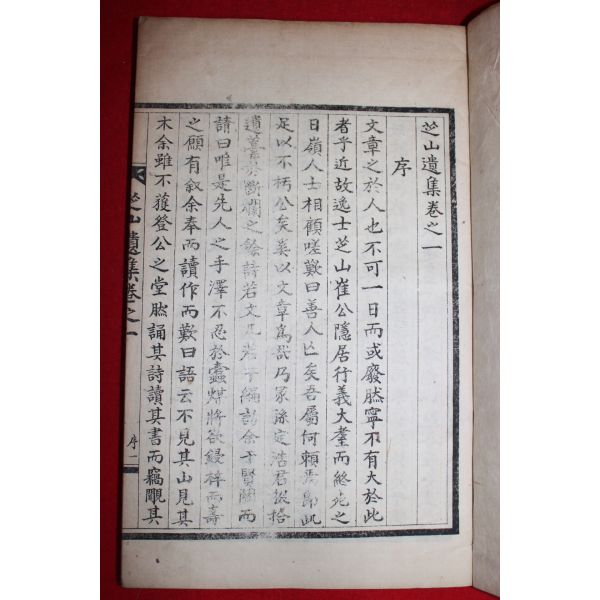 芝山遺集卷之一
序
文章之於人也不可一日而或廢然寧不有大於此
者乎近故逸士芝山崔公隱居行義大耋而終死之
日嶺人士相顧嗟歎曰善人亡矣吾屬何賴焉即此
足以不朽公矣奚以文章爲哉乃冢孫定浩君掇拾
遺藁於斷爛之餘詩若文凡若干編訪余于賢關而
請曰唯是先人之手澤不忍於蠹蝶將欲鋟梓而壽
之願有叙余奉而讀作而歎曰語云不見其山見其
木余雖不獲登公之堂然誦其詩讀其書而竊覸其
芝山遺集卷之一
序一